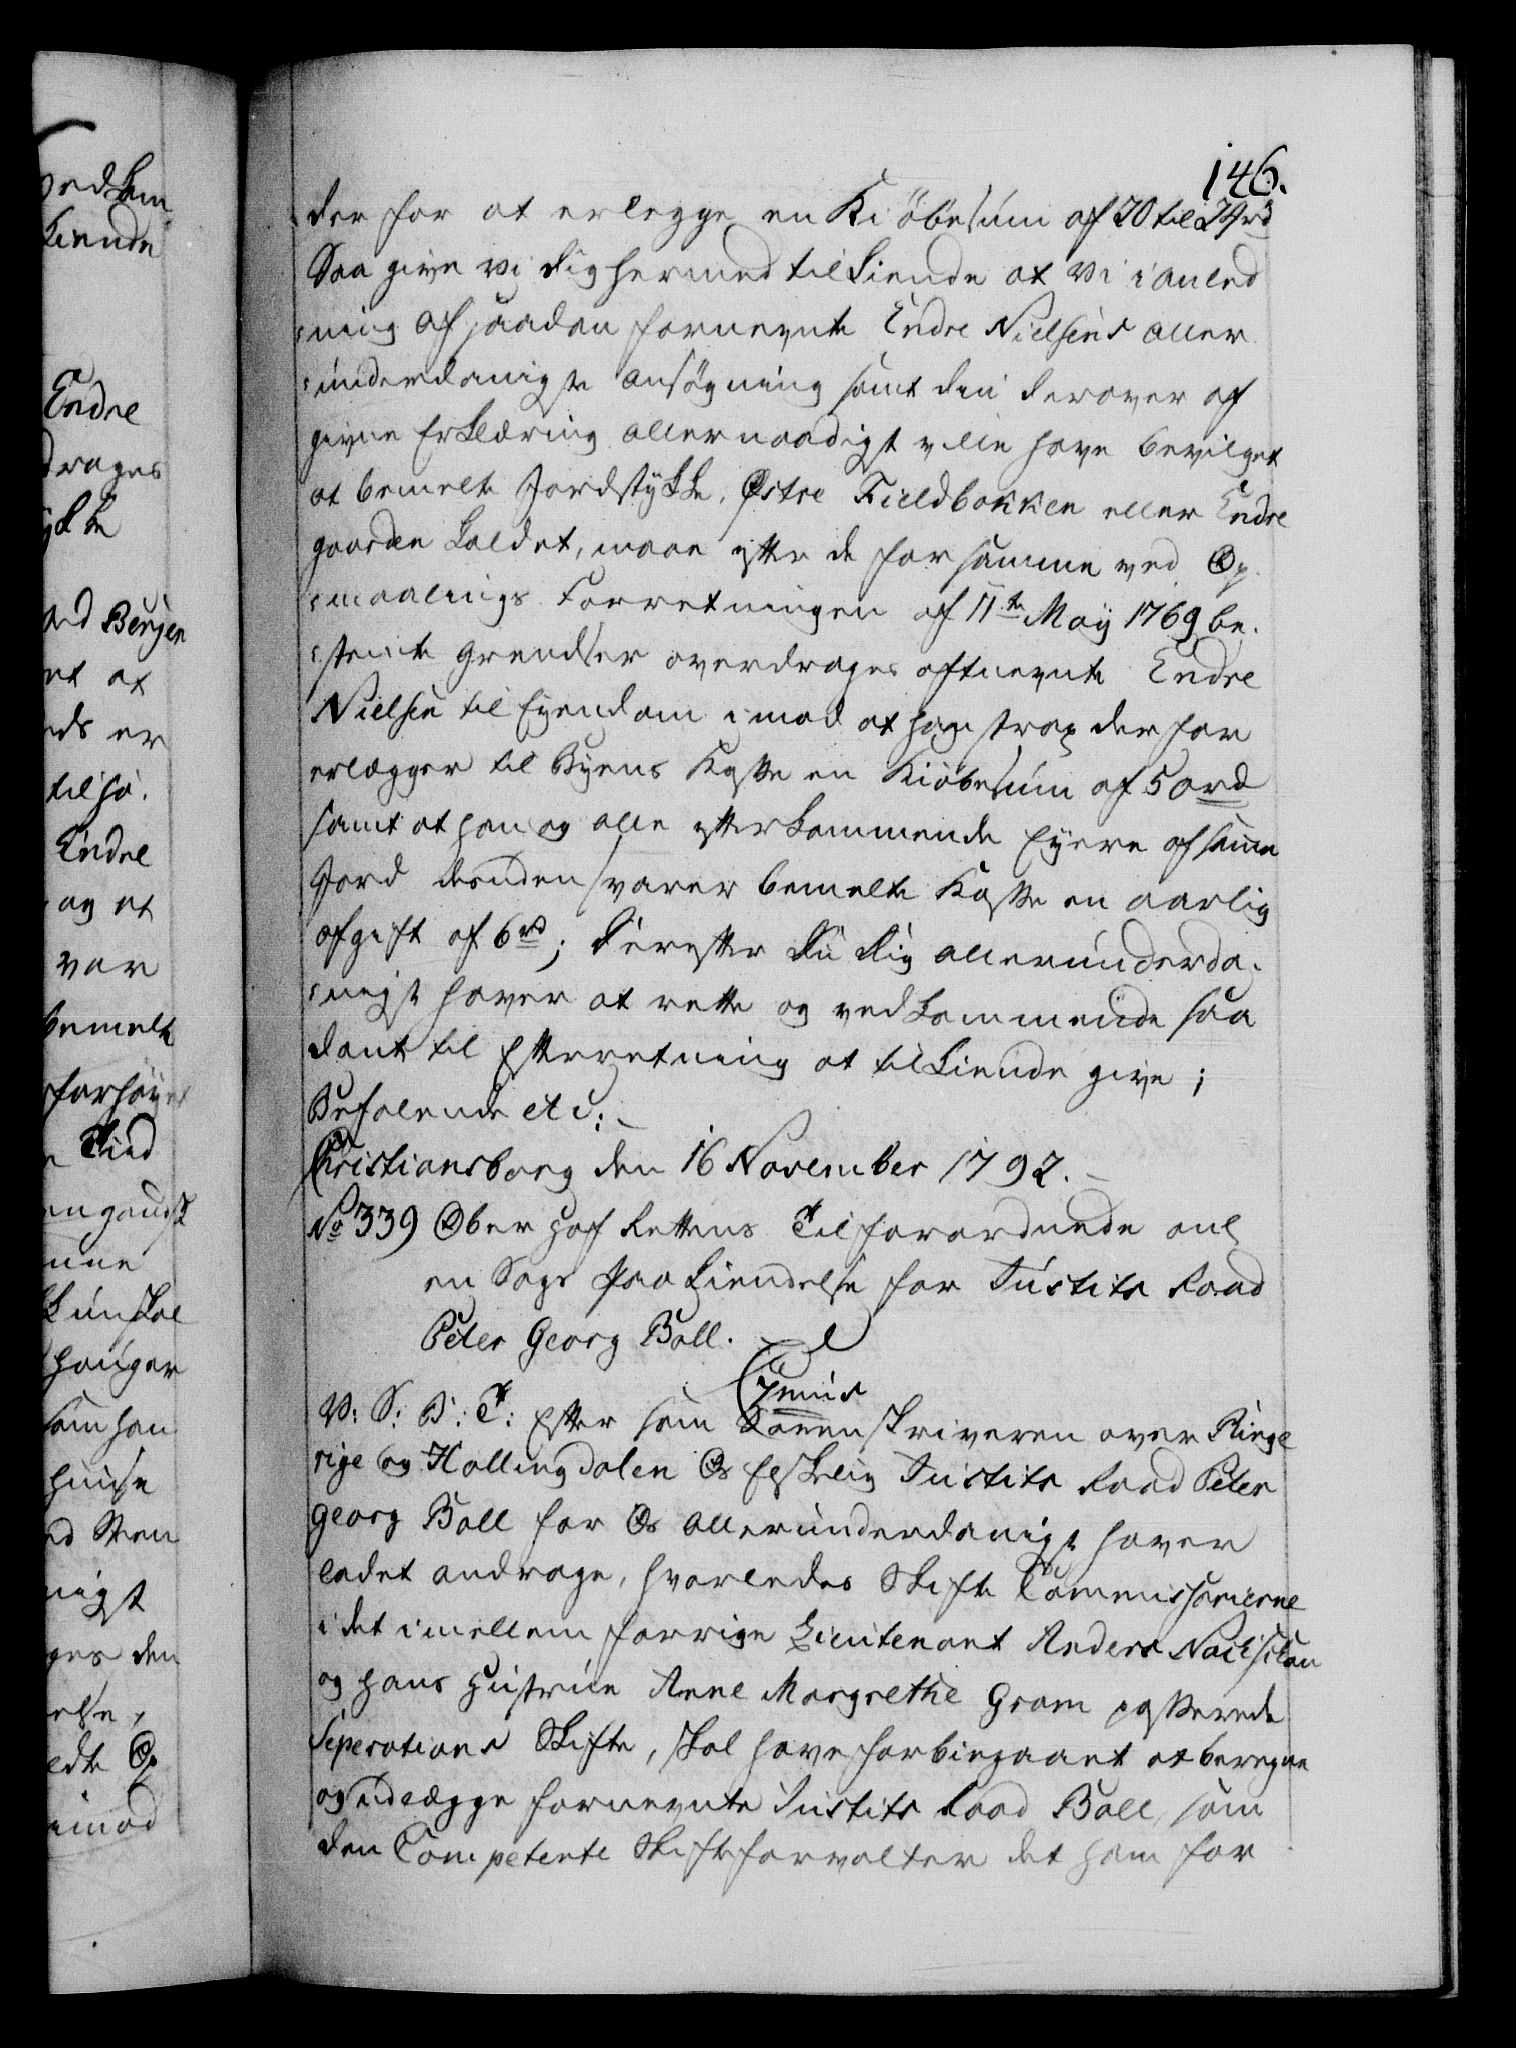 146.
der for at erlegge en Kiöbesum af 20 til 24rd
Saa give vi dig hermed tilkiende at Vi i anled
:ning af saadan fornevnte Endre Nielsens aller
:underdanigste ansøgning samt den derover af
givne Erklæring allernaadigst ville have bevilget
at bemelte Jordstykke, Østre Fieldbakken eller Endre
gaarden kaldet, maae efter de for samme ved Op
:maalings Forretningen af 11te Maij 1769 be.
:stemte Grendser overdrages oftnevnte Endre
Nielsen til Eyendom imod at han strax derfor
erlægger til Byens Kasse en Kiöbesum af 50rd
samt at han og alle efterkommende Eyere af samme
Jord desuden svarer bemelte Kasse en aarlig
afgift af 6rd; Derefter Du dig allerunderda.
:nigst haver at rette og vedkommende saa
dant til Efterretning at tilkiende give;
Befalende etc:
Christiansborg den 16 November 1792.
No 339 Ober Hof Rettens Tilforordnede anl
en Sags Paakiendelse for Justits Raad
Peter Georg Ball.
V: S: B: T: Efter som Sorenskriveren over Ringe
rige og Hallingdalen Os Elskelig Justits Raad Peter
Georg Ball for Os allerunderdanigst haver
ladet andrage, hvorledes Skifte Commissarierne
i det imellem forrige Lieutenant Anders
og hans Hustrue Anne Margrethe Gram passerede
Seperations Skifte, skal have forbiegaaet at beregne
og udlægge fornevnte Justits Raad Ball, som
den Competente Skifteforvalter det ham for
vedkom
kiende
Endre
drages
ykke
Bergen
et at
er
til
Endre
og at
var
bemelt
forhøyet
Tiid
samhan
huuse
nigst
ges den
else,
edte Op
imod